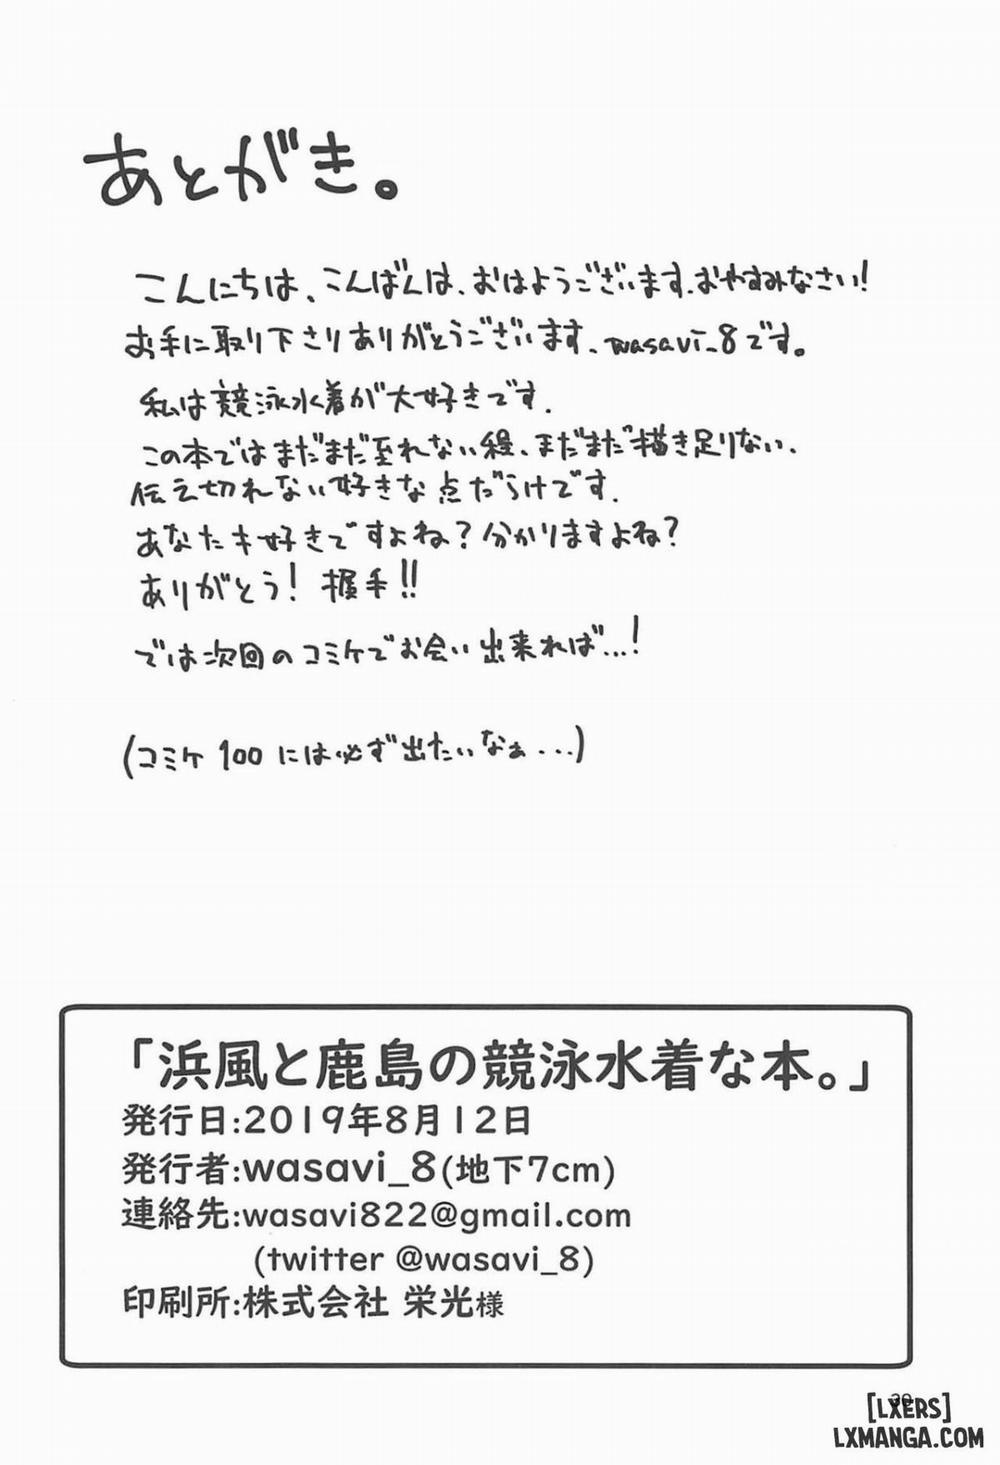 あとがき。
こんにちは、こんばんは、おはようございます、おやすみなさい!
お手に取り下さりありがとうございます、wasavi_8です。
私は競泳水着が大好きです.
この本ではまだまだ至れない程、まだまだ描き足りない、
伝え切れない好きな点だらけです.
あなたも好きですよね?分かりますよね?
ありがとう! 握手!!
では次回のコミケでお会い出来れば...!
(コミケ100には必ず出たいなぁ...)
「浜風と鹿島の競泳水着な本。」
発行日:2019年8月12日
発行者:wasavi_8(地下7cm)
連絡先:wasavi822@gmail.com
(twitter @wasavi_8)
印刷所:株式会社 栄光様
30
[LXERS]
LXMANGA.COM